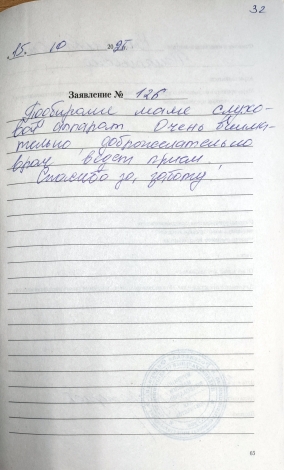 32
15. 10 2025г.
Заявление № 126
Подбирали маме слухо-
вой аппарат Очень внима-
тельно, доброжелательно
врач ведет прием.
Спасибо за, заботу,
63